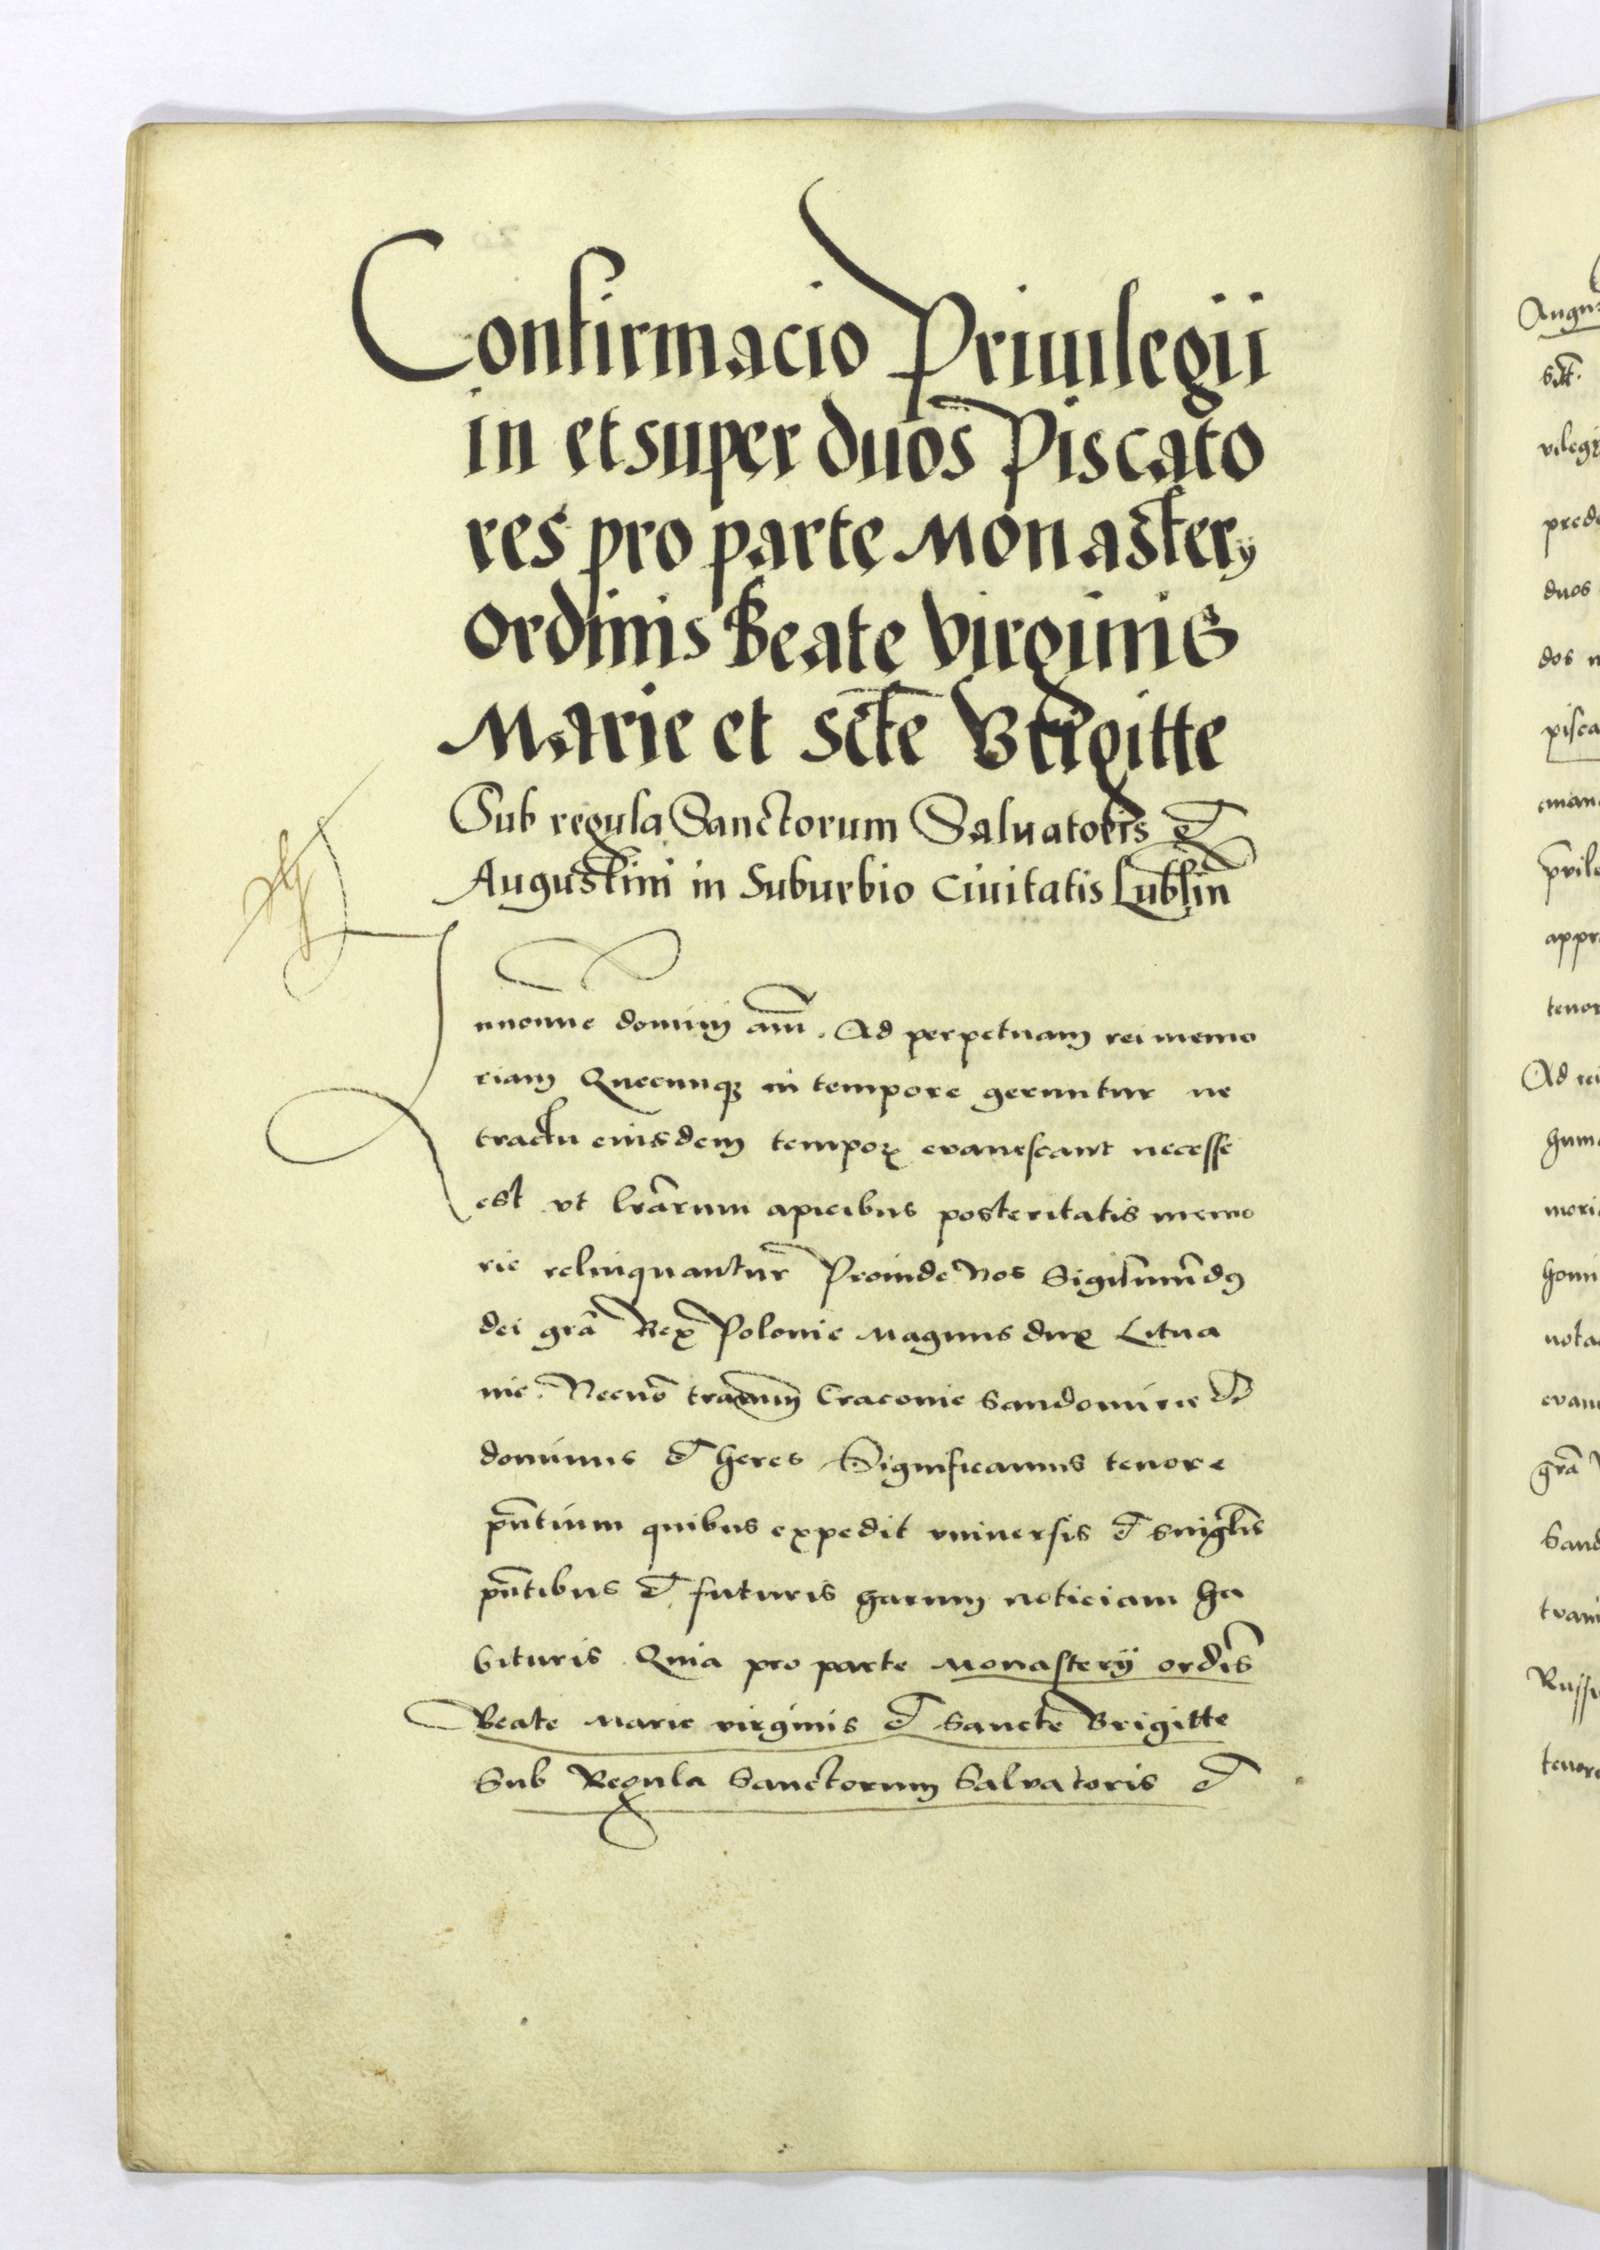 Confirmacio Priuilegii
in et super duos Piscato
res pro parte Monastery
ordinis Beate virginis
Marie et Scte Brigitte
Sub regula Sanctorum Saluatoris et
Augustini in Suburbio Ciuitatis Lublin
In nomine domini am̄. Ad perpetuam rei memo
riam Quecunqꝫ in tempore geruntur ne
tractu eiusdem temporꝭ evanescant necesse
est vt lrārum apicibus posteritatis memo
rie relinquantur Proinde Nos Sigismūndꝰ
dei grā Rex Polonie Magnus dux Litua
nie. Necnō trarum Cracouie Sandomirie et
dominus et heres Significamus tenore
pn̄tium quibus expedit vniuersis et singlis
pn̄tibus et futuris harum noticiam ha
bituris Quia pro parte Monasterÿ ordis̄
Beate Marie virginis et Sancte Brigitte
Sub Regula Sanctorum Salvatoris et
Augus
vilegi
prede
duos
dos
pisca
eman
appr
tenor
Ad rei
hum
mori
homi
nota
evan
grā
Sand
Russi
tenore